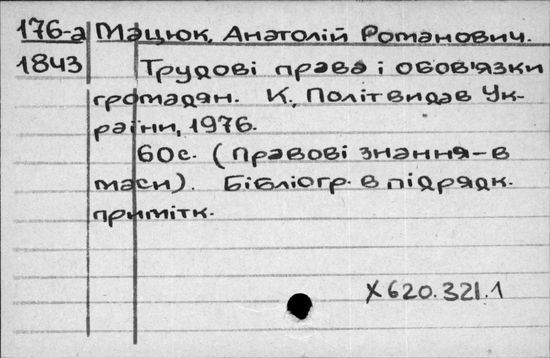 176-а Мацюк, Анатолій Романович.
1843 Трудові права і обов'язки
громадян. К, Політвидав Ук-
раїни, 1976.
60с. (Правові знання-в
маси). Бібліогр. в підрядк.
примітк.
Х620.321.1